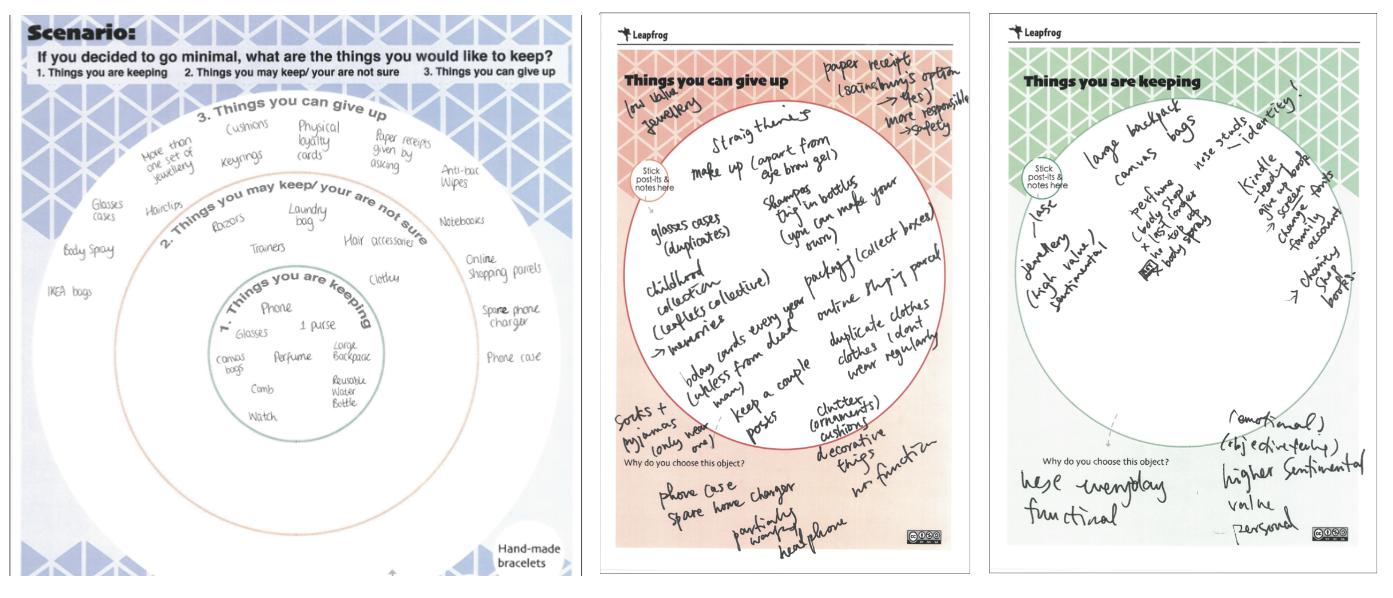 Scenario:
If you decided to go minimal, what are the things you would like to keep?
1. Things you are keeping 2. Things you may keep/ your are not sure 3. Things you can give up
3. Things you can give up
More than
one set of
jewellery
Cushions
Keyrings
Physical
loyalty
cards
Paper receipts
given by
asking
Anti-bac
Wipes
Glasses
cases
Hairclips
Notebooks
Body Spray
IKEA bags
Online
shopping parcels
Spare phone
charger
Phone case
2. Things you may keep/ your are not sure
Razors
Laundry
bag
Trainers
Hair accessories
Clothes
1. Things you are keeping
Phone
Glasses
1 purse
canvas
bags
Perfume
Large
Backpack
Comb
Reusable
Water
Bottle
Watch
Hand-made
bracelets
Leapfrog
Things you can give up
low value
jewellery
paper receipt
(sainsbury's option
→ yes)
more responsible
→ safety
Stick
post-its &
notes here
make up (apart from
eye brow gel)
glasses cases
(duplicates)
in bottles
(you can make your
own)
childhood
collection
(leaflets collective)
→ memories
packaging (collect boxes)
online
bday cards every year
(unless from dead
keep a couple
posts
duplicate clothes
clothes I dont
wear regularly
clutter
(ornaments)
cushions
decorative
things
no function
socks +
pyjamas
(only wear
one)
Why do you choose this object?
phone case
spare
partially
headphone
Leapfrog
Things you are keeping
Stick
post-its &
notes here
large backpack
canvas bags
nose studs
identity!
Kindle
give up book
screen
change fonts
family
account
→ charity
shop
books
perfume
(body shop)
last longer
top up
body spray
jewellery
(high value)
sentimental
Why do you choose this object?
everyday
functional
(emotional)
higher sentimental
value
personal